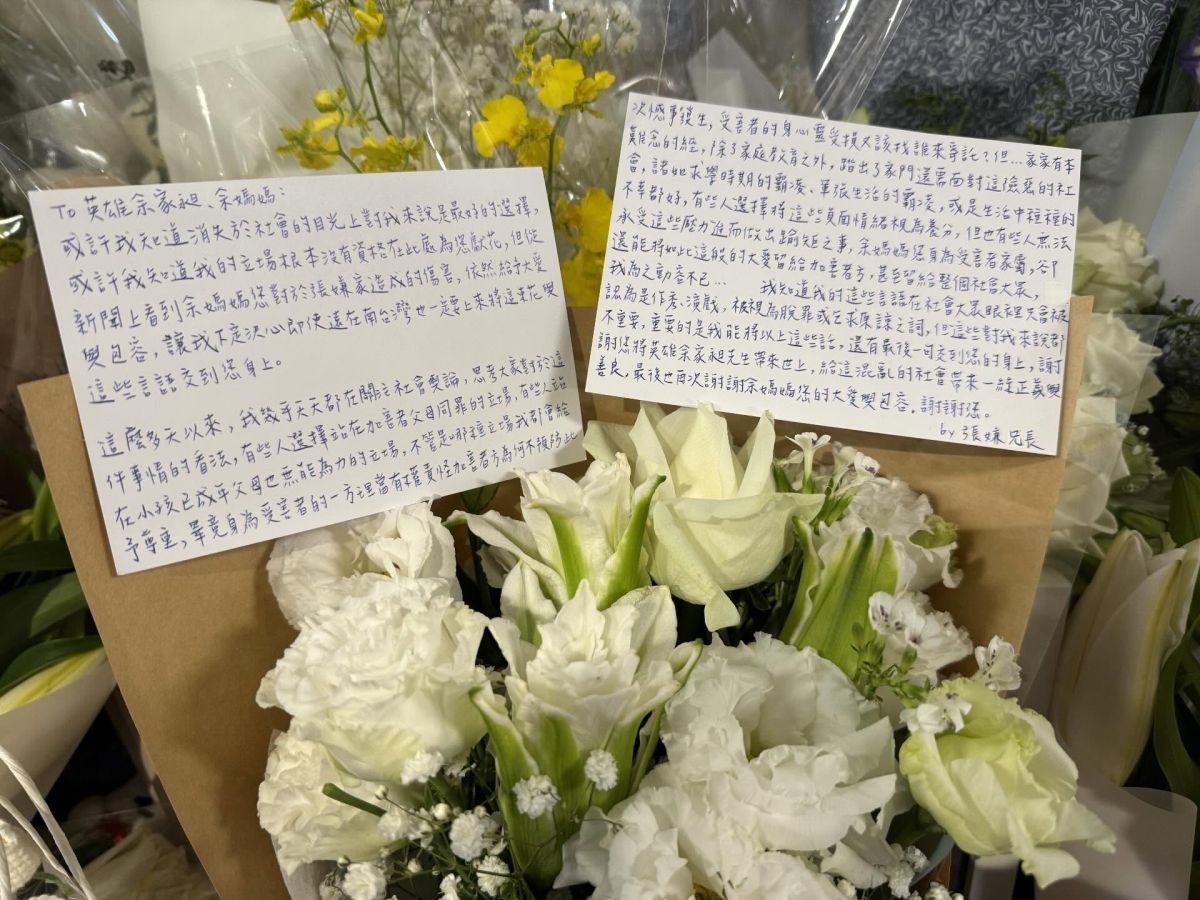 To 英雄余家昶、余媽媽：
或許我知道消失於社會的目光上對我來說是最好的選擇，
或許我知道我的立場根本沒有資格在此處為您獻花，但從
新聞上看到余媽媽您對於張嫌家造成的傷害，依然給予大愛
與包容，讓我下定決心即使遠在南台灣也一定要上來將這束花與
這些言語交到您身上。
這麼多天以來，我幾乎天天都在關注社會輿論，思考大家對於這
件事情的看法，有些人選擇站在加害者父母同罪的立場，有些人站
在小孩已成年父母也無能為力的立場，不管是哪種立場我都會給
予尊重，畢竟身為受害者的一方理當有權責怪加害者方為何不預防此
次憾事發生，受害者的身心靈受損又該找誰來寄託？但…家家有本
難念的經，除了家庭教育之外，踏出了家門還需面對這險惡的社
會，諸如求學時期的霸凌、軍張生活的霸凌，或是生活中種種的
不幸都好，有些人選擇將這些負面情緒視為養分，但也有些人無法
承受這些壓力進而做出踰矩之事，余媽媽您身為受害者家屬，卻
還能將如此這般的大愛留給加害者方，甚至留給整個社會大眾，
我為之動容不已… 我知道我的這些言語在社會大眾眼裡只會被
認為是作秀、演戲，被視為脫罪或乞求原諒之詞，但這些對我來說都
不重要，重要的是我能將以上這些話，還有最後一句交到您的身上，謝
謝您將英雄余家昶先生帶來世上，給這混亂的社會帶來一絲正義與
善良，最後也再次謝謝余媽媽您的大愛與包容，謝謝您。
by 張嫌兄長